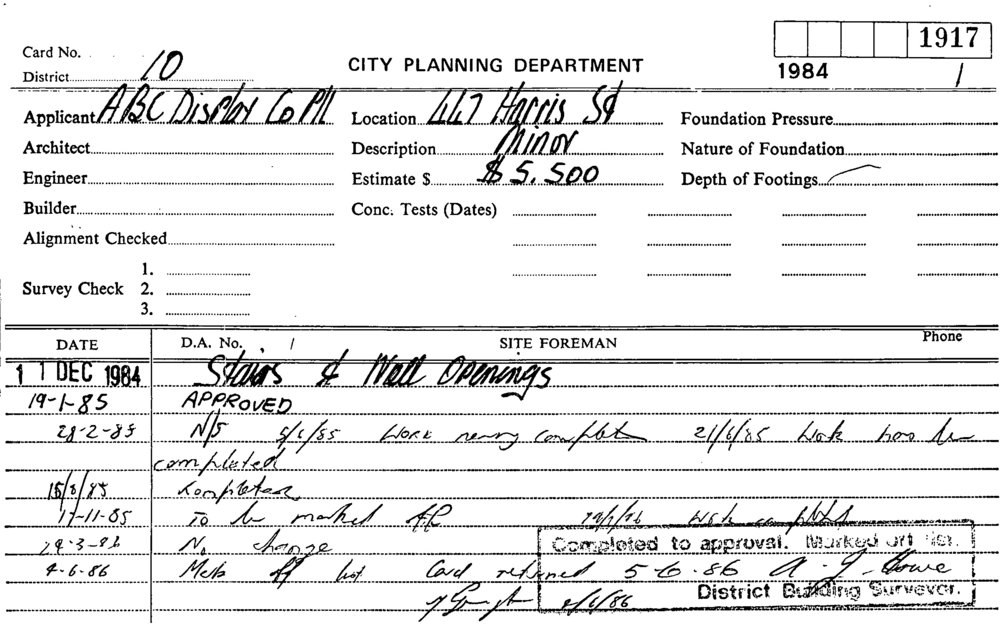 1917
Card No.
District 10
CITY PLANNING DEPARTMENT
1984 /
Applicant ABC Display Co P/L Location 447 Harris St Foundation Pressure
Architect Description Minor Nature of Foundation
Engineer Estimate $ $5,500 Depth of Footings
Builder Conc. Tests (Dates)
Alignment Checked
1.
Survey Check 2.
3.
DATE D.A. No. / SITE FOREMAN Phone
11 DEC 1984 Stairs & Wall Openings
19-1-85 APPROVED
28-2-85 N/S 5/6/85 Work nearly complete 21/6/85 Work has be
completed
15/8/85 Completed
17-11-85 To be marked work completed
24-3-86 No change
Completed to approval. Marked off list.
4-6-86 off list. Card returned 5-6-86 A. J. Howe
/6/86 District Building Surveyor.